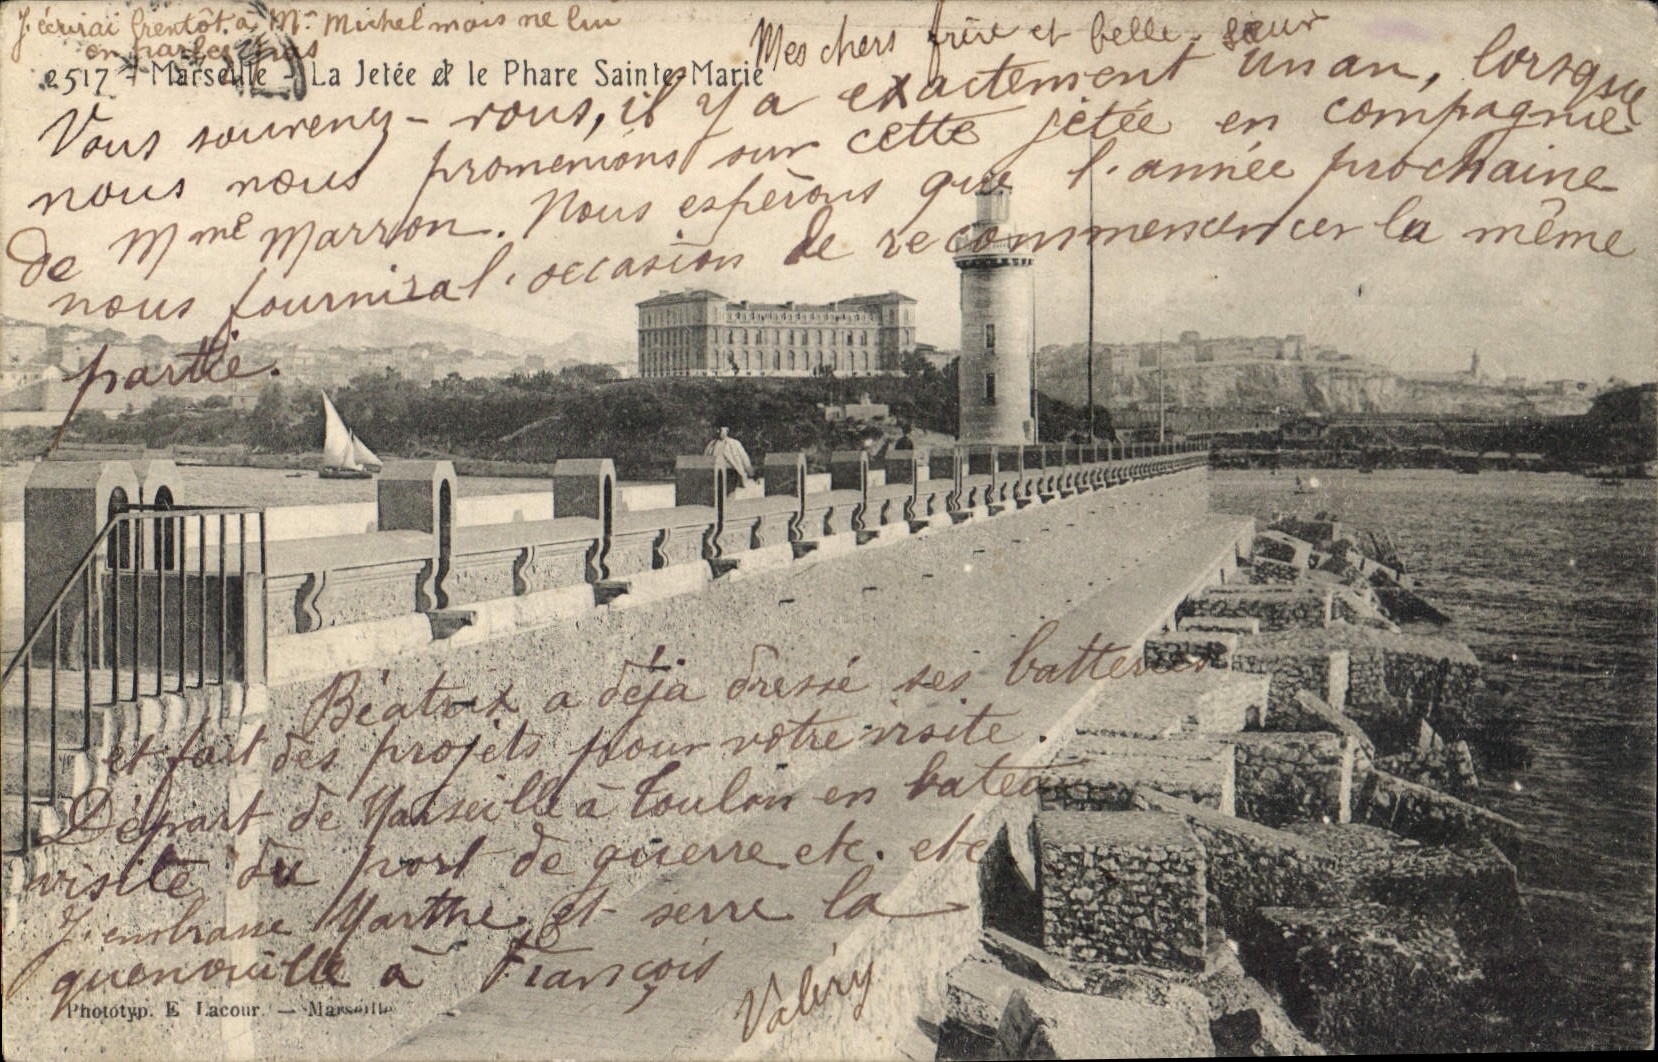 J'écrirai bientôt à Mr Michel mais ne lui
en parlez pas
2517 - Marseille - La Jetée et le Phare Sainte-Marie
Mes chers frère et belle-sœur
Vous souvenez-vous, il y a exactement un an, lorsque
nous nous promenions sur cette jetée en compagnie
de Mme Marron. Nous espérons que l'année prochaine
nous fournira l'occasion de recommencer la même
partie.
Béatrix a déjà dressé ses batteries
et fait des projets pour votre visite.
Départ de Marseille à Toulon en bateau
visite du port de guerre etc. etc
J'embrasse Marthe et serre la
quenouille à François
Valéry
Phototyp. E Lacour. — Marseille